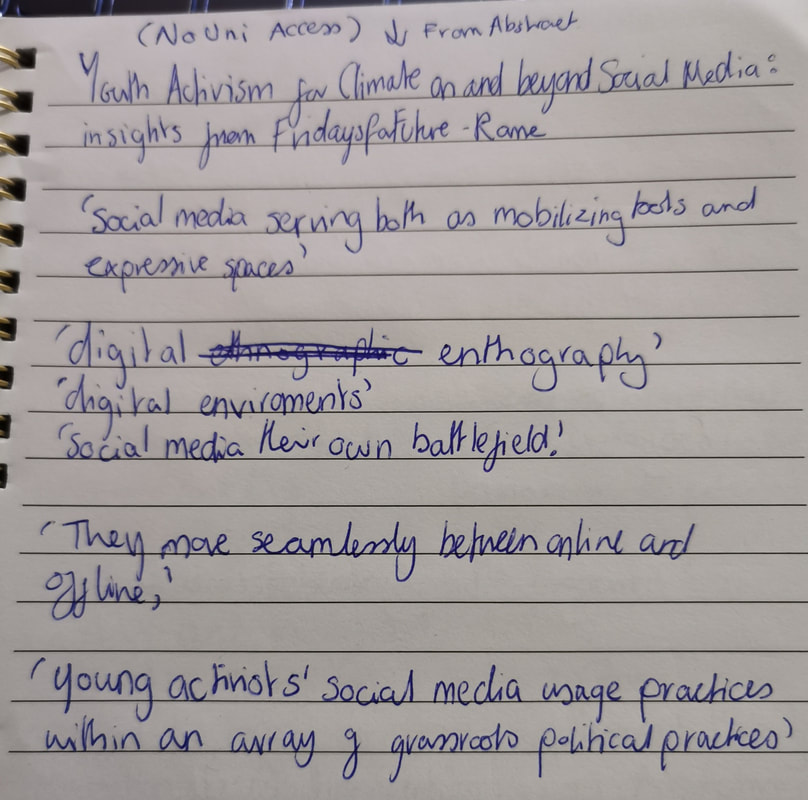 (No Uni Access) ↓ From Abstract
Youth Activism for Climate on and beyond Social Media:
insights from FridaysforFuture-Rome
'Social media serving both as mobilizing tools and
expressive spaces'
'digital ethnographic enthography'
'digital enviroments'
'social media their own battlefield.'
'They move seamlessly between online and
offline,'
'young activists' social media usage practices
within an array of grassroots political practices'